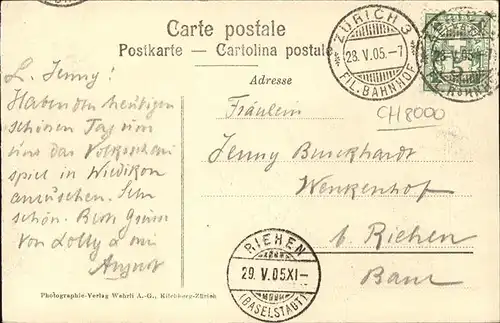 Carte postale
Postkarte — Cartolina postale
Adresse
ZÜRICH 3
28.V.05.-7
FIL. BAHNHOF
28.V.05.-7
5
CH 8000
L. Jenny!
Haben den heutigen
schönen Tag um
uns das Volksschau
spiel in Wiedikon
anzusehen. Sehr
schön. Beste Grüsse
von Lolly & mir
August
Fräulein
Jenny Burckhardt
Wenkenhof
b. Riehen
RIEHEN
29.V.05XI-
(BASELSTADT)
Photographie-Verlag Wehrli A.-G., Kilchberg-Zürich